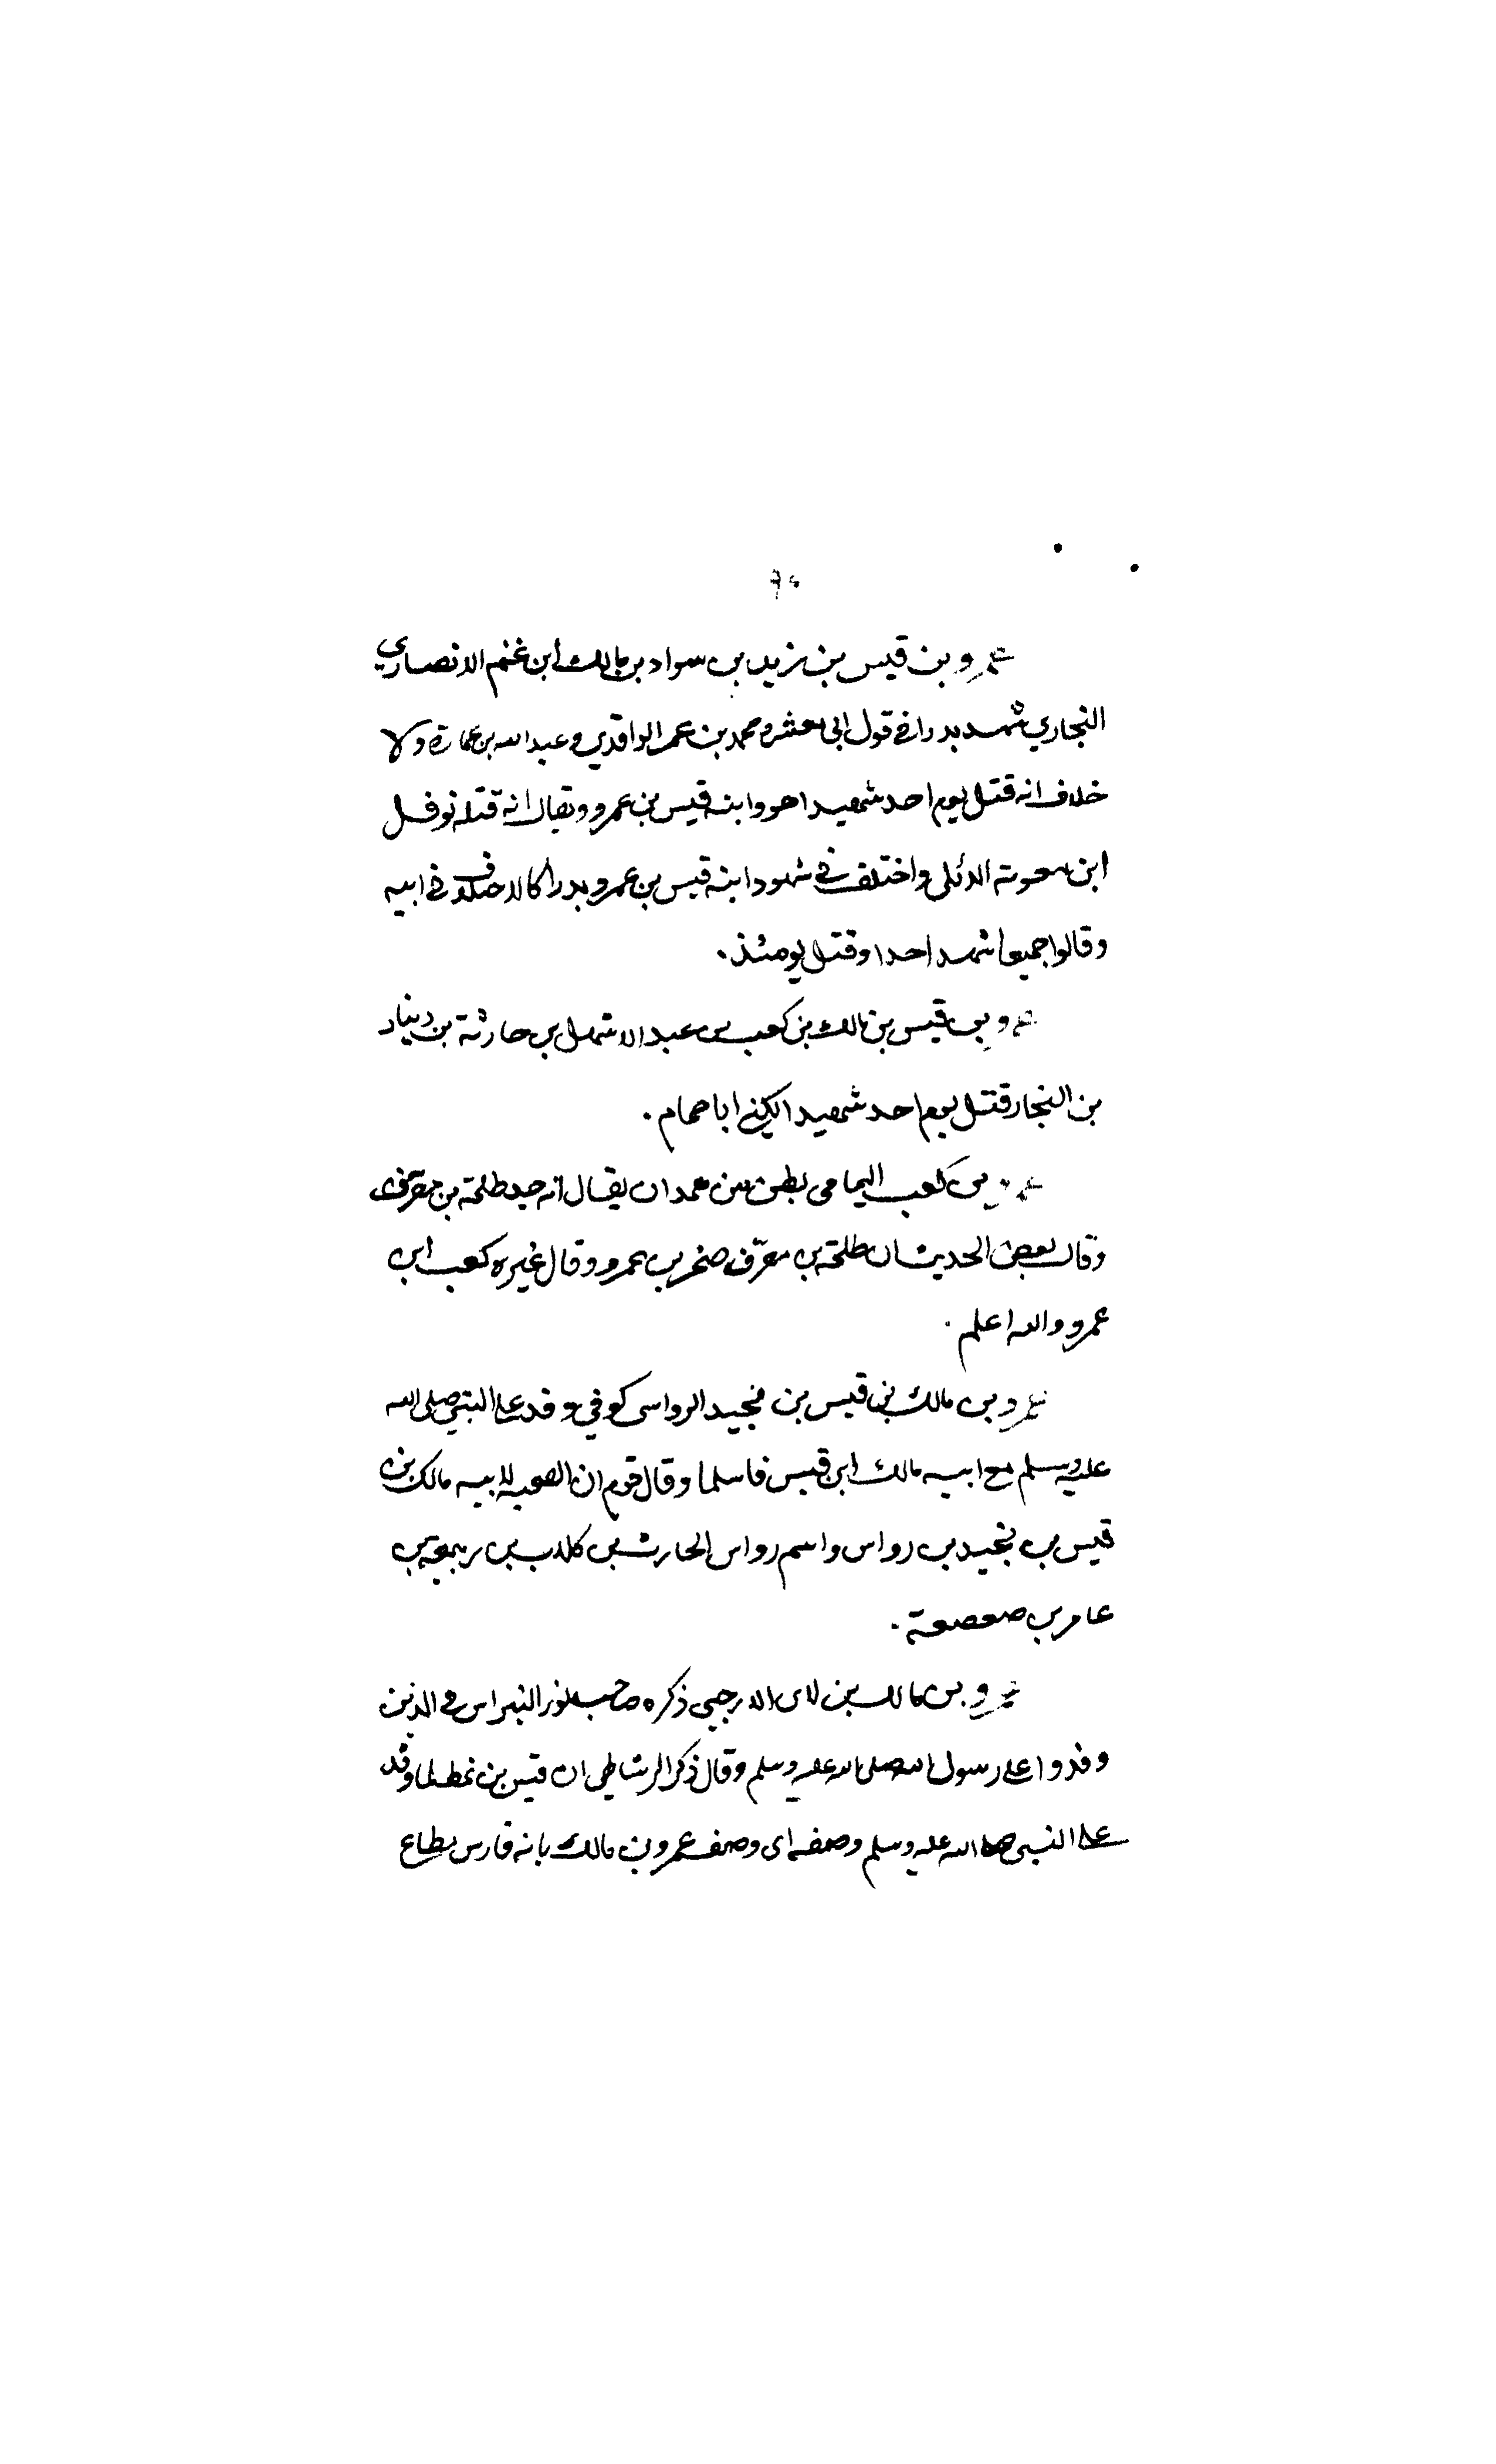 عمرو بن قيس بن زيد بن سواد بن مالك ابن غنم الانصاري
النجاري شهد بدرا في قول ابي معشر ومحمد بن عمر الواقدي وعبد الله بن عمارة ولا
خلاف انه قتل يوم احد شهيدا هو وابنه قيس بن عمرو ويقال انه قتله نوفل
ابن معوية الدئلى واختلف في شهود ابنه قيس بن عمرو بدرا كالاختلاف في ابيه
وقالوا جميعا شهد احدا وقتل يومئذ.
عمرو بن قيس بن مالك بن كعب بن عبد الاشهل بن حارثة بن دينار
بن النجار قتل يوم احد شهيدا يكنى ابا حمام.
عمرو بن كعب اليمامى بطن من همدان يقال انه جد طلحة بن مصرف
وقال بعض الحديث ان طلحة بن مصرّف صخر بن عمرو وقال غيره كعب ابن
عمرو والله اعلم.
عمرو بن مالك بن قيس بن نجيد الرواسى كوفي وفد على النبي صلى الله
عليه وسلم مع ابيه مالك ابن قيس فاسلما وقال قوم ان الصحبة لابيه مالك بن
قيس بن نجيد بن رواس واسم رواس الحارث بن كلاب بن ربيعة بن
عامر بن صعصعة.
عمرو بن مالك بن لاى الارحبي ذكره صاحب نور النبراس في الذين
وفدوا على رسول الله صلى الله عليه وسلم وقال ذكر الرشاطي ان قيس بن نمط لما وفد
على النبي صلى الله عليه وسلم وصفه اى وصف عمرو بن مالك بانه فارس مطاع